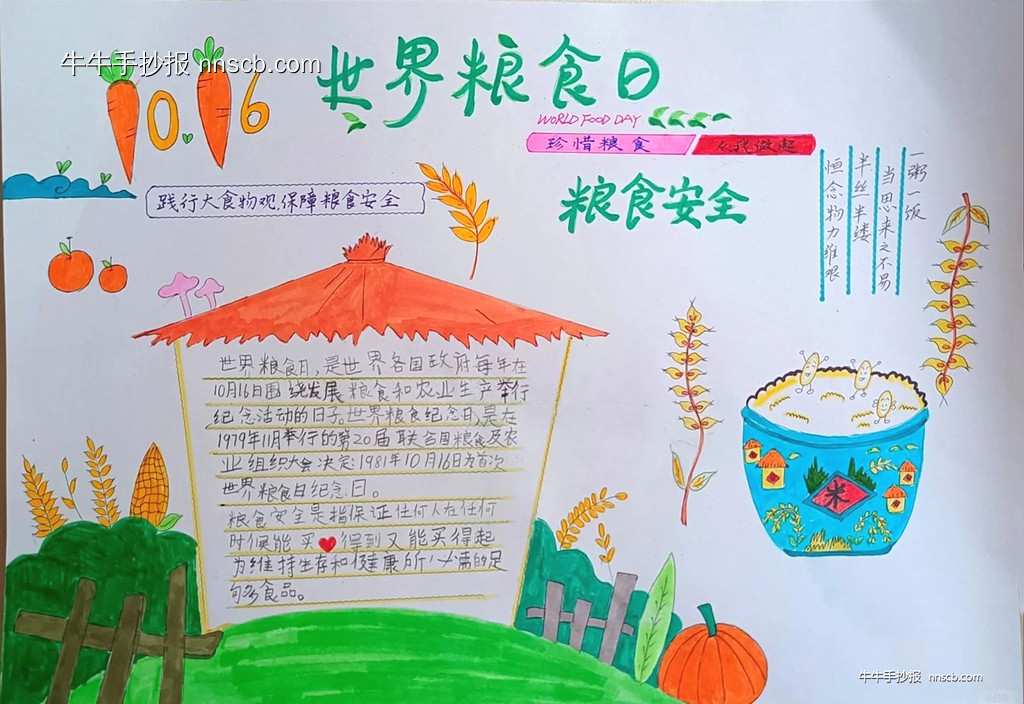 牛牛手抄报 nnscb.com
10.16
世界粮食日
WORLD FOOD DAY
珍惜粮食 从我做起
践行大食物观,保障粮食安全
粮食安全
一粥一饭
当思来之不易
半丝半缕
恒念物力维艰
世界粮食日,是世界各国政府每年在
10月16日围绕发展粮食和农业生产举行
纪念活动的日子。世界粮食纪念日,是在
1979年11月举行的第20届联合国粮食及农
业组织大会决定:1981年10月16日为首次
世界粮食日纪念日。
粮食安全是指保证任何人在任何
时候能买得到又能买得起
为维持生存和健康所必需的足
够多食品。
米
牛牛手抄报 nnscb.com